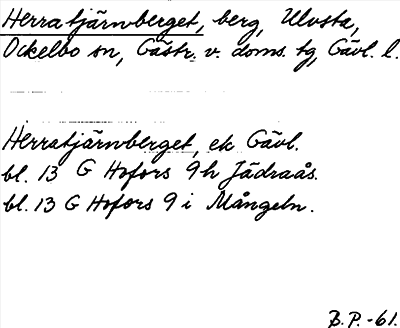 Herratjärnberget, berg, Ulvsta,
Ockelbo sn, Gästr. v. doms. tg, Gävl. l.
Herratjärnberget, ek Gävl.
bl. 13 G Hofors 9h Jädraås.
bl. 13 G Hofors 9 i Mångeln.
B.P. -61.